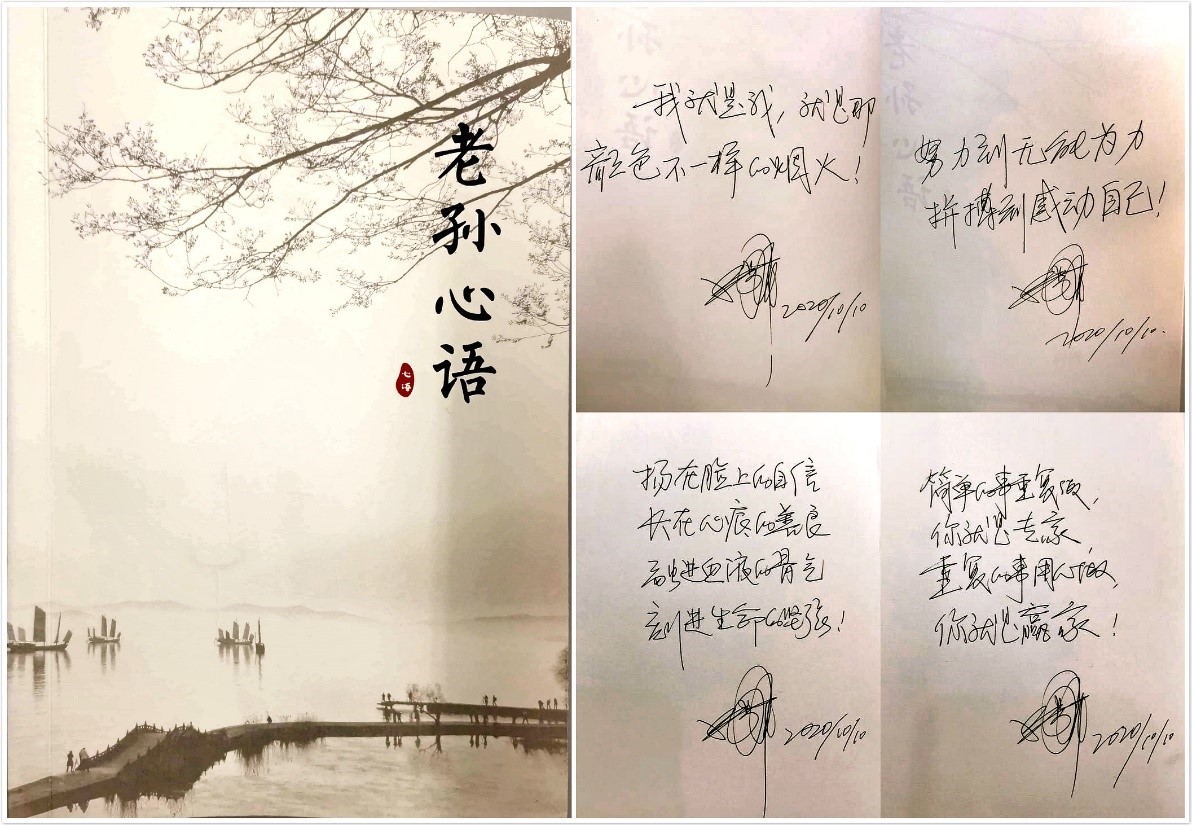 老孙心语
我就是我,就是那
颜色不一样的烟火!
2020/10/10
努力到无能为力
拼搏到感动自己!
2020/10/10.
扬在脸上的自信
长在心底的善良
融进血液的骨气
刻进生命的坚强!
2020/10/10
简单的事重复做,
你就是专家,
重复的事用心做,
你就是赢家!
2020/10/10